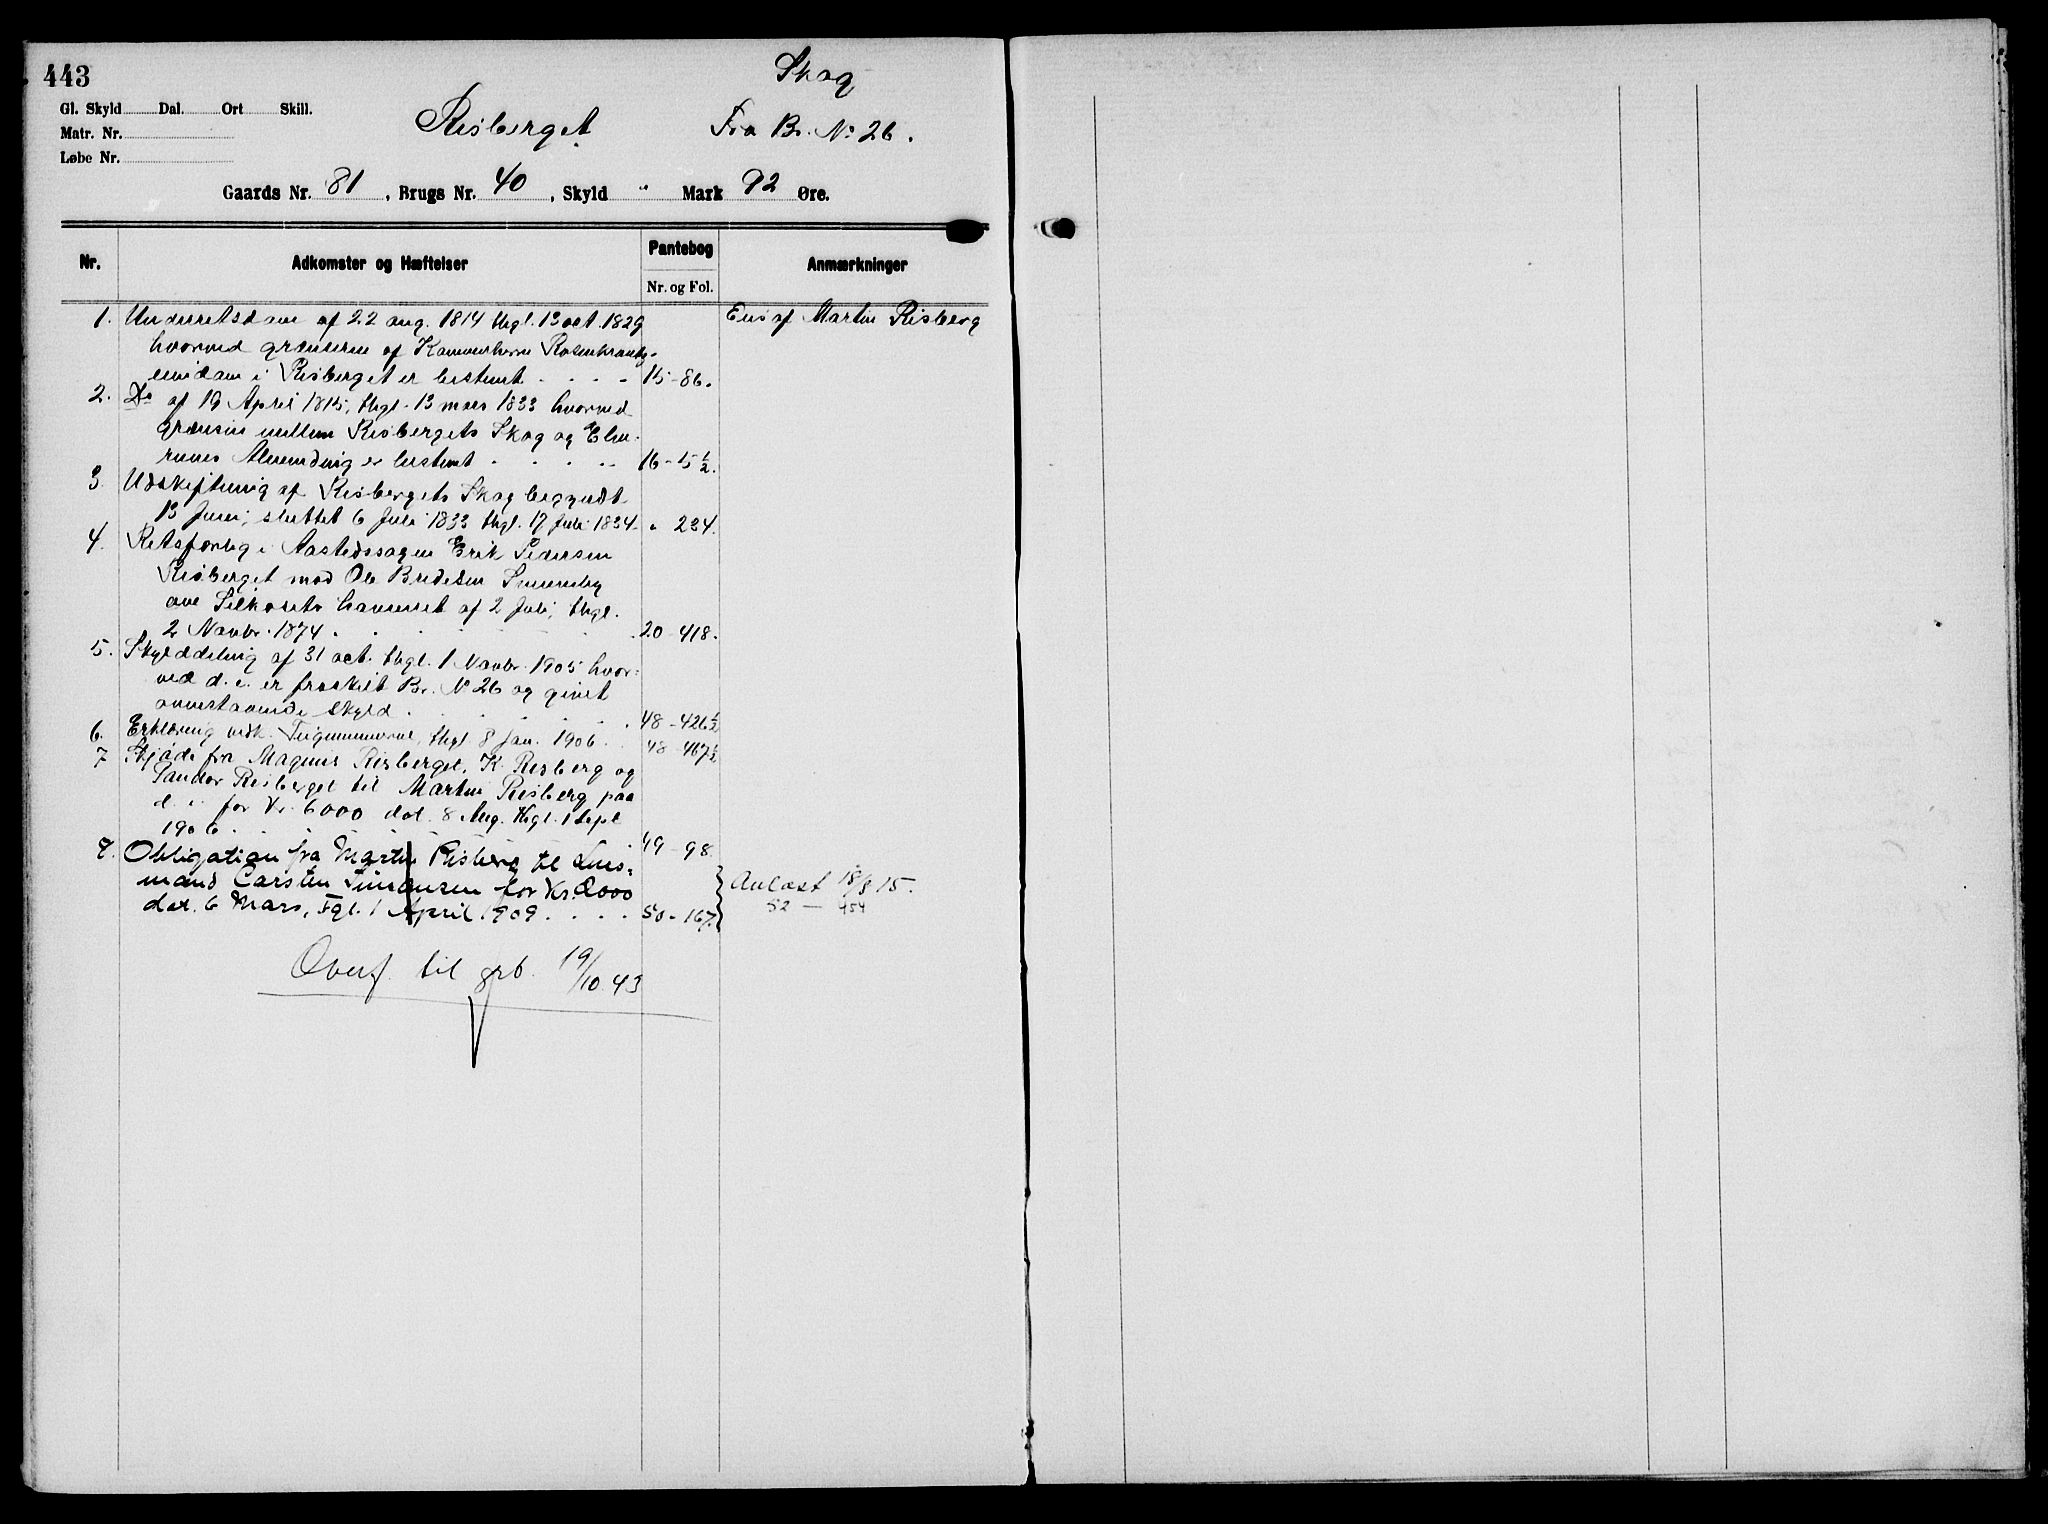 443
Skog
Gl. Skyld Dal. Ort Skill.
Matr. Nr.
Løbe Nr.
Risberget
Fra Br. No 26.
Gaards Nr. 81, Brugs Nr. 40, Skyld " Mark 92 Øre.
Nr. Adkomster og Hæftelser Pantebog Anmærkninger
Nr. og Fol.
1. Underretsdom af 22 aug. 1814 thgl. 13 oct. 1829 Eies af Martin Risberg
hvorved grænserne af Kammerherre Rosenkrantz
eiendom i Risberget er bestemt . . . . 15-86.
2. Do af 19 April 1815, thgl. 13 mars 1833 hvorved
grænsen mellem Risbergets Skog og Elve-
rums Almending er bestemt . . . . . 16-5 1/2.
3. Udskiftning af Risbergets Skog begyndt
13 Juni, sluttet 6 Juli 1833 thgl. 17 Juli 1834. " 234.
4. Retsforlig i Aastedssagen Erik Pedersen
Risberget mod Ole Bredesen
af 2 Juli, thgl.
2 Novbr. 1874 . . . . . . . 20-418.
5. Skylddeling af 31 oct. thgl. 1 Novbr. 1905 hvor=
ved d. e. er fraskilt Br. No 26 og givet
ovenstaaende Skyld . . . . . . 48-426 1/2
6. Erklæring vedk. thgl 8 jan. 1906 . . 48-467 1/2
7 Skjøde fra Magnus Risberget, K. Risberg og
Sander Risberget til Martin Risberg paa
d. e. for Kr. 6000 dat. 8 Aug. thgl. 1 Sept
1906 . . . . . . . 49-98
8. Obligation fra Martin Risberg til Lens=
mand Carsten Simensen for Kr. 2000 Avlæst 18/8 15.
dat. 6 Mars, tgl. 1 April 1909 . . . . 50-167. 52 — 454
Overf. til grb. 19/10 43